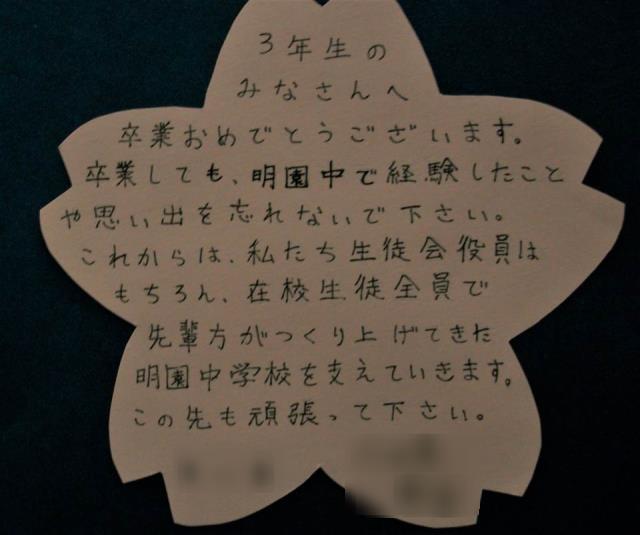 3年生の
みなさんへ
卒業おめでとうございます。
卒業しても、明園中で経験したこと
や思い出を忘れないで下さい。
これからは、私たち生徒会役員は
もちろん、在校生徒全員で
先輩方がつくり上げてきた
明園中学校を支えていきます。
この先も頑張って下さい。